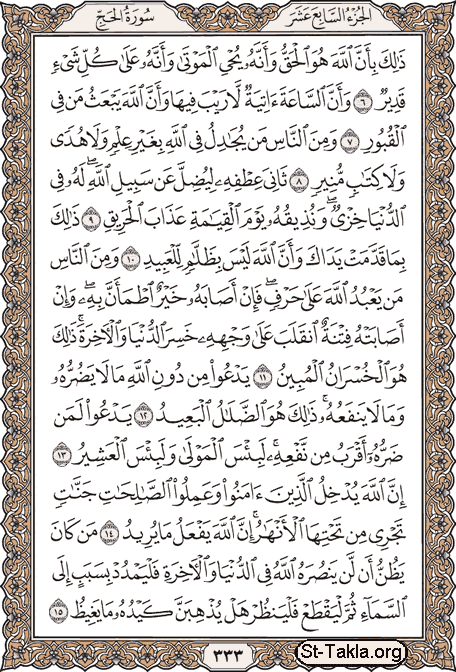 الجزء السابع عشر
سورة الحج
ذَٰلِكَ بِأَنَّ ٱللَّهَ هُوَ ٱلْحَقُّ وَأَنَّهُۥ يُحْيِ ٱلْمَوْتَىٰ وَأَنَّهُۥ عَلَىٰ كُلِّ شَىْءٍ
قَدِيرٌ ٦ وَأَنَّ ٱلسَّاعَةَ ءَاتِيَةٌ لَّا رَيْبَ فِيهَا وَأَنَّ ٱللَّهَ يَبْعَثُ مَن فِى
ٱلْقُبُورِ ٧ وَمِنَ ٱلنَّاسِ مَن يُجَٰدِلُ فِى ٱللَّهِ بِغَيْرِ عِلْمٍ وَلَا هُدًى
وَلَا كِتَٰبٍ مُّنِيرٍ ٨ ثَانِىَ عِطْفِهِۦ لِيُضِلَّ عَن سَبِيلِ ٱللَّهِ ۖ لَهُۥ فِى
ٱلدُّنْيَا خِزْىٌ ۖ وَنُذِيقُهُۥ يَوْمَ ٱلْقِيَٰمَةِ عَذَابَ ٱلْحَرِيقِ ٩ ذَٰلِكَ
بِمَا قَدَّمَتْ يَدَاكَ وَأَنَّ ٱللَّهَ لَيْسَ بِظَلَّٰمٍ لِّلْعَبِيدِ ١٠ وَمِنَ ٱلنَّاسِ
مَن يَعْبُدُ ٱللَّهَ عَلَىٰ حَرْفٍ ۖ فَإِنْ أَصَابَهُۥ خَيْرٌ ٱطْمَأَنَّ بِهِۦ ۖ وَإِنْ
أَصَابَتْهُ فِتْنَةٌ ٱنقَلَبَ عَلَىٰ وَجْهِهِۦ خَسِرَ ٱلدُّنْيَا وَٱلْءَاخِرَةَ ۚ ذَٰلِكَ
هُوَ ٱلْخُسْرَانُ ٱلْمُبِينُ ١١ يَدْعُوا۟ مِن دُونِ ٱللَّهِ مَا لَا يَضُرُّهُۥ
وَمَا لَا يَنفَعُهُۥ ۚ ذَٰلِكَ هُوَ ٱلضَّلَٰلُ ٱلْبَعِيدُ ١٢ يَدْعُوا۟ لَمَن
ضَرُّهُۥٓ أَقْرَبُ مِن نَّفْعِهِۦ ۚ لَبِئْسَ ٱلْمَوْلَىٰ وَلَبِئْسَ ٱلْعَشِيرُ ١٣
إِنَّ ٱللَّهَ يُدْخِلُ ٱلَّذِينَ ءَامَنُوا۟ وَعَمِلُوا۟ ٱلصَّٰلِحَٰتِ جَنَّٰتٍ
تَجْرِى مِن تَحْتِهَا ٱلْأَنْهَٰرُ ۚ إِنَّ ٱللَّهَ يَفْعَلُ مَا يُرِيدُ ١٤ مَن كَانَ
يَظُنُّ أَن لَّن يَنصُرَهُ ٱللَّهُ فِى ٱلدُّنْيَا وَٱلْءَاخِرَةِ فَلْيَمْدُدْ بِسَبَبٍ إِلَى
ٱلسَّمَآءِ ثُمَّ لْيَقْطَعْ فَلْيَنظُرْ هَلْ يُذْهِبَنَّ كَيْدُهُۥ مَا يَغِيظُ ١٥
٣٣٣
St-Takla.org